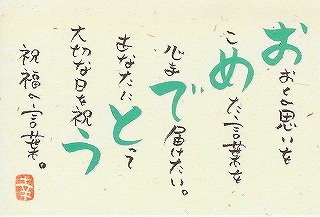 おお思いを
こめた言葉を
心まで届けたい。
あなたにとって
大切な日を祝う
祝福の言葉。